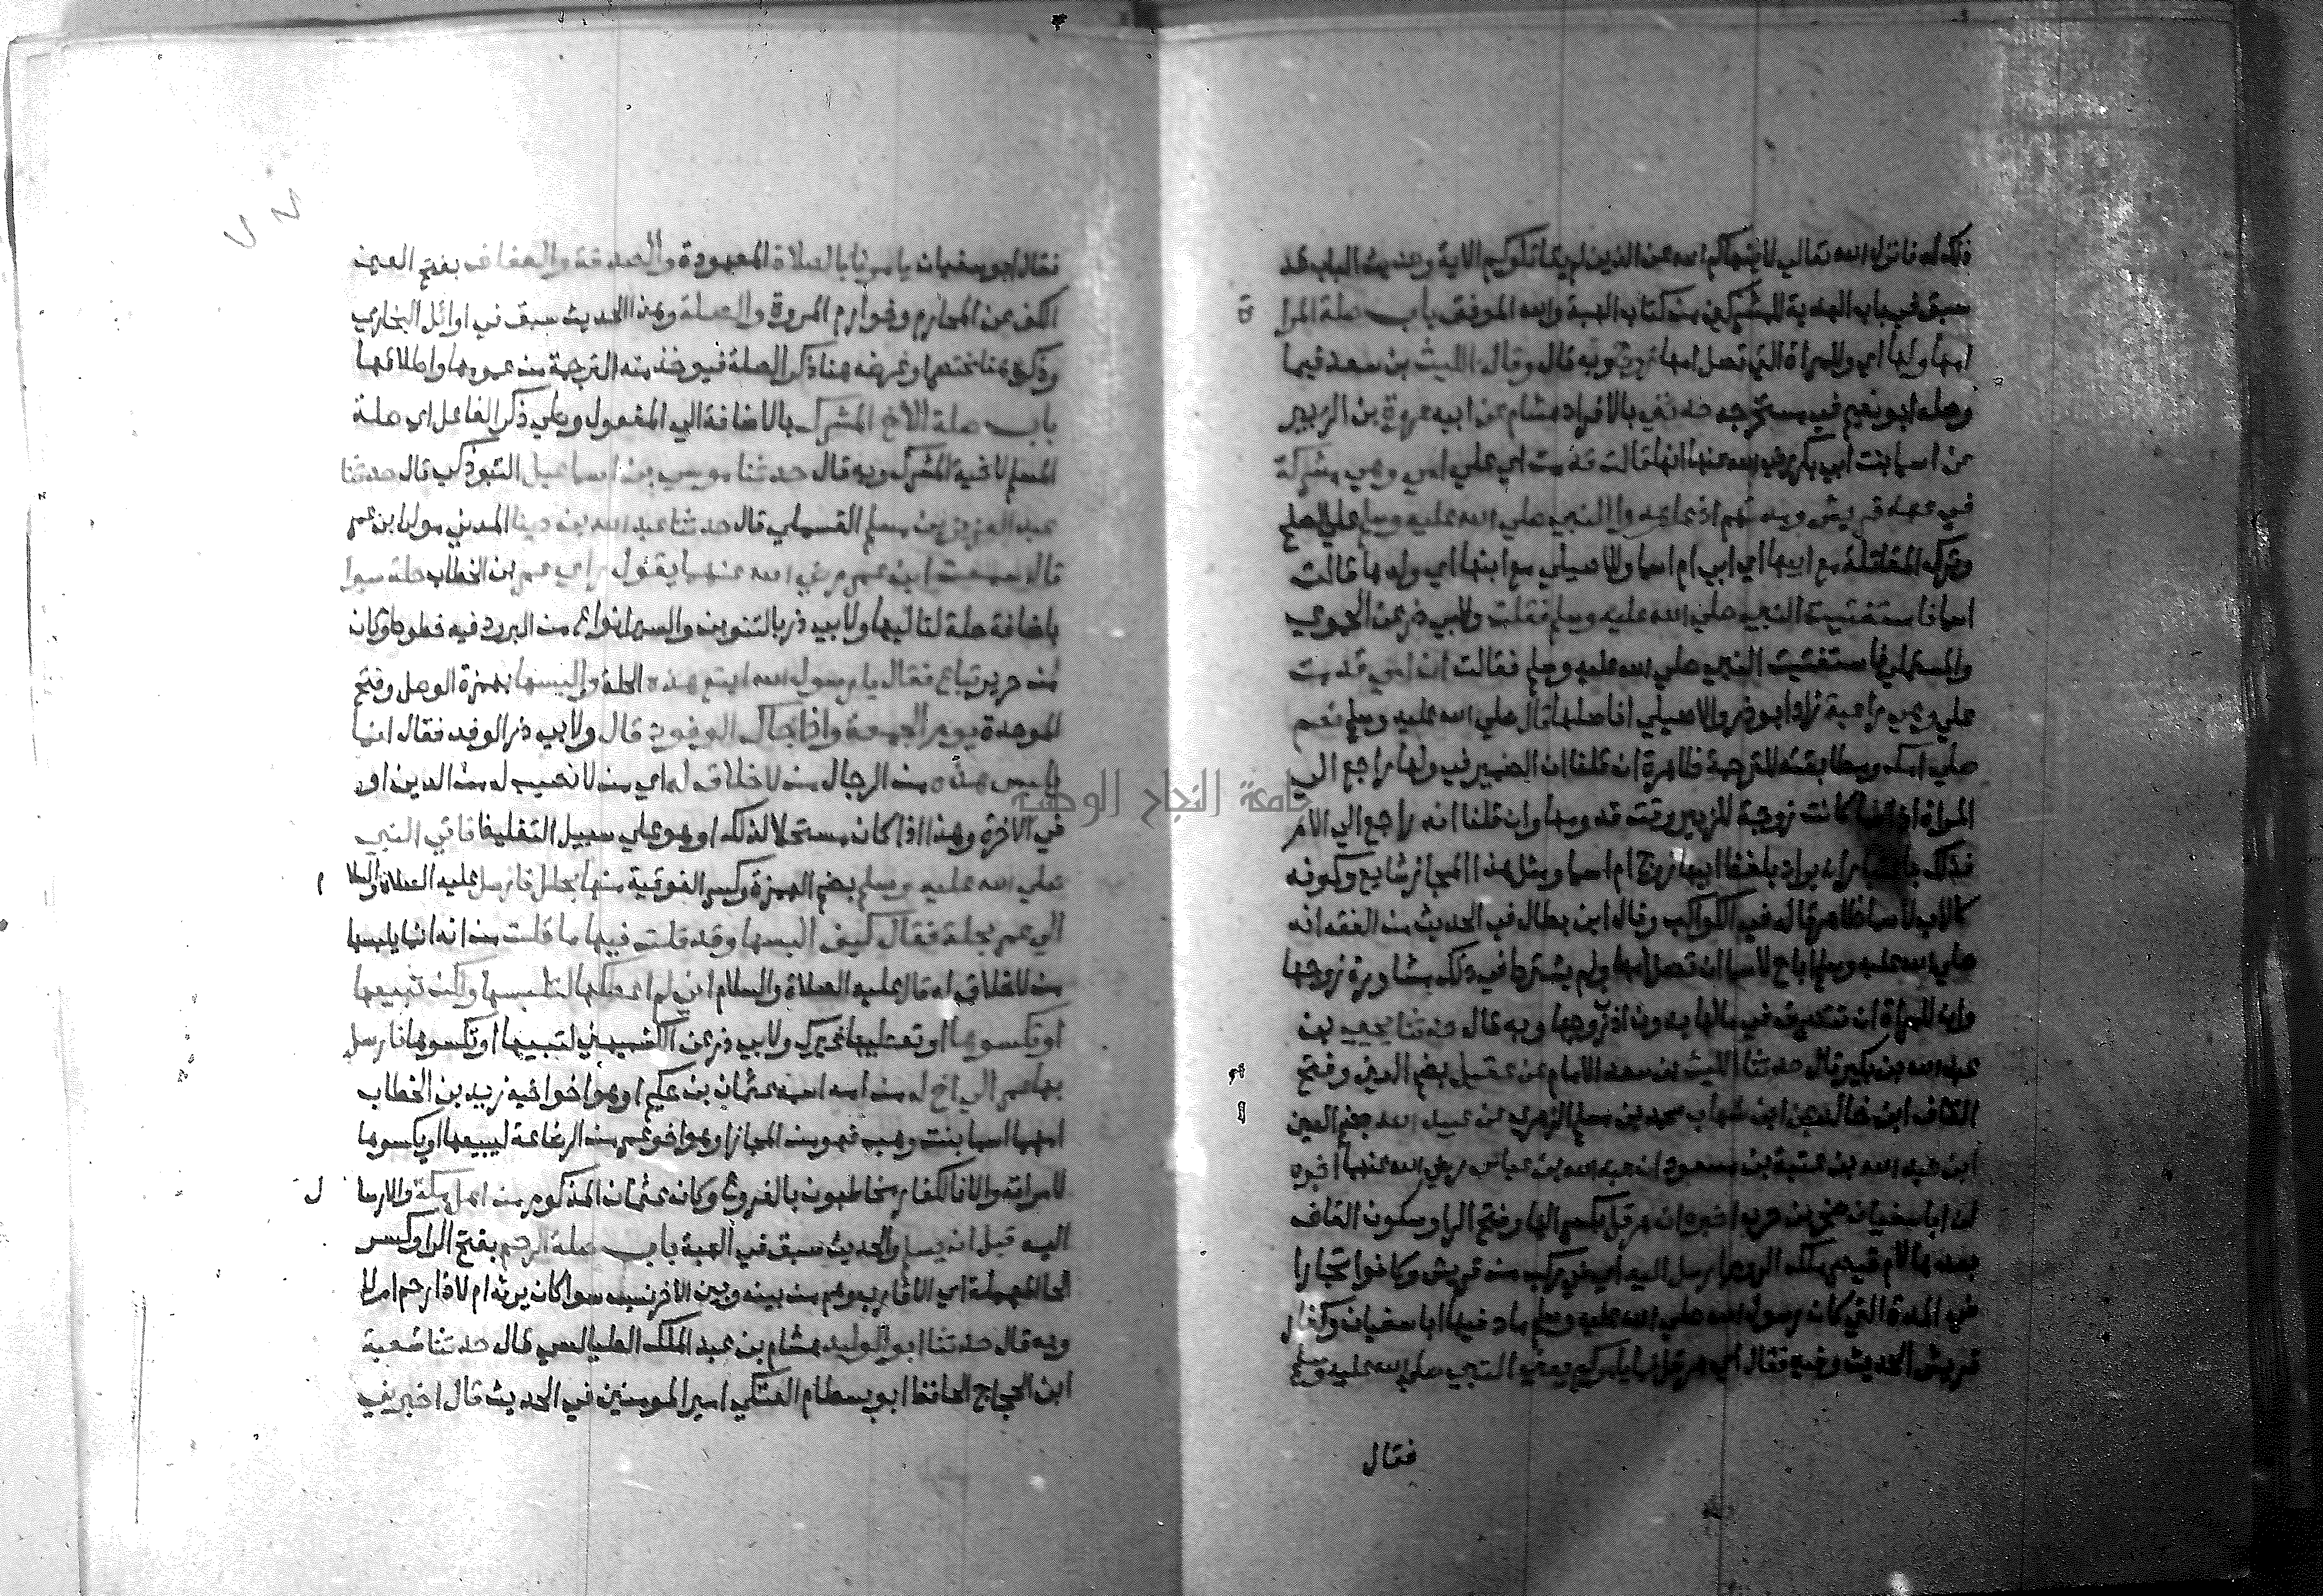 ذلك له فانزل الله تعالي لا ينهاكم الله عن الذين لم يقاتلوكم الاية وحديث الباب قد
سبق في باب الهدية للمشركين من كتاب الهبة والله الموفق باب صلة المرا ة
امها ولها اي وللمراة التي تصل امها زوج وبه قال وقال الليث بن سعد فيما
وصله ابو نعيم في مستخرجه حدثني بالافراد هشام عن ابيه عروة بن الزبير
عن اسما بنت ابي بكر رضي الله عنها انها قالت قدمت امي علي امي وهي مشركة
في عهد قريش ومدتهم اذ عاهدوا النبي صلي الله عليه وسلم علي الصلح
وترك المقاتلة مع ابيها اي ابي ام اسما وللاصيلي مع ابنها اي ولدها قالت
اسما فاستفتيت النبي صلي الله عليه وسلم فقلت ولابي ذر عن الحموي
والمستملي فاستفتيت النبي صلي الله عليه وسلم فقالت ان امي قدمت
علي وهي راغبة زاد ابو ذر والاصيلي افاصلها قال صلي الله عليه وسلم نعم
صلي امك ومطابقته للترجمة ظاهرة ان قلنا ان الضمير في ولها راجع الي
المراة اذ اسما كانت زوجة للزبير وقت قدومها وان قلنا انه راجع الي الام
فذلك باعتبار ان يراد بلفظ ابيها زوج ام اسما ومثل هذا المجاز شايع وكونه
كالاب لاسما ظاهر قاله في الكواكب وقال ابن بطال في الحديث من الفقه انه
صلي الله عليه وسلم اباح لاسما ان تصل امها ولم يشترط في ذلك مشاورة زوجها
وان للمراة ان تتصرف في مالها بدون اذن زوجها وبه قال حدثنا يحيي بن
عبد الله بن بكير قال حدثنا الليث بن سعد الامام عن عقيل بضم العين وفتح
القاف ابن خالد عن ابن شهاب محمد بن مسلم الزهري عن عبيد الله بضم العين
ابن عبد الله بن عتبة بن مسعود ان عبد الله بن عباس رضي الله عنهما اخبره
ان ابا سفيان صخر بن حرب اخبره ان هرقل بكسر الها وفتح الرا وسكون القاف
بعدها لام قيصر ملك الروم ارسل اليه اي في ركب من قريش وكانوا تجارا
في المدة التي كان رسول الله صلي الله عليه وسلم ماد فيها ابا سفيان وكفار
قريش الحديث وفيه فقال اي هرقل فما يامركم يعني النبي صلي الله عليه وسلم
فقال
فقال ابو سفيان يامرنا بالصلاة المعهودة والصدقة والعفاف بفتح العين
الكف عن المحارم وخوارم المروة والصلة وهذا الحديث سبق في اوائل البخاري
وذكره هنا مختصرا وغرضه هنا ذكر الصلة فيوخذ منه الترجمة من عمومها واطلاقها
باب صلة الاخ المشرك بالاضافة الي المفعول وطي ذكر الفاعل اي صلة
المسلم لاخيه المشرك وبه قال حدثنا موسي بن اسماعيل التبوذكي قال حدثنا
عبد العزيز بن مسلم القسملي قال حدثنا عبد الله بن دينار المدني مولي ابن عمر
قال سمعت ابن عمر رضي الله عنهما يقول راي عمر بن الخطاب حلة سيرا
باضافة حلة لتاليها ولابي ذر بالتنوين والسيرا نوع من البرود فيه خطوط وكان
من حرير تباع فقال يا رسول الله ابتع هذه الحلة والبسها بهمزة الوصل وفتح
الموحدة يوم الجمعة واذا جاك الوفود قال ولابي ذر الوفد فقال انما
يلبس هذه من الرجال من لا خلاق له اي من لا نصيب له من الدين او
في الاخرة وهذا اذا كان مستحلا لذلك او هو علي سبيل التغليظ فاتي النبي
صلي الله عليه وسلم بضم الهمزة وكسر الفوقية منها بحلل فارسل عليه الصلاة والسلا م
الي عمر بحلة فقال كيف البسها وقد قلت فيها ما قلت من انه انما يلبسها
من لا خلاق له قال عليه الصلاة والسلام اني لم اعطكها لتلبسها ولكن تبيعها
او تكسوها او تعطيها غيرك ولابي ذر عن الكشميهني لتبيعها او تكسوها فارسل
بها عمر الي اخ له من امه اسمه عثمان بن حكيم او هو اخو اخيه زيد بن الخطاب
امهما اسما بنت وهب فهو من المجاز او هو اخو عمر من الرضاعة ليبيعها او يكسوها
لامراته والا فالكفار مخاطبون بالفروع وكان عثمان المذكور من اهل مكة والارسا ل
اليه قبل ان يسلم والحديث سبق في الهبة باب صلة الرحم بفتح الرا وكسر
الحا المهملة اي الاقارب وهم من بينه وبين الاخر نسب سوا كان يرثه ام لا ذا رحم ام لا
وبه قال حدثنا ابو الوليد هشام بن عبد الملك الطيالسي قال حدثنا شعبة
ابن الحجاج الحافظ ابو بسطام العتكي امير المومنين في الحديث قال اخبرني
جامعة النجاح الوطنية